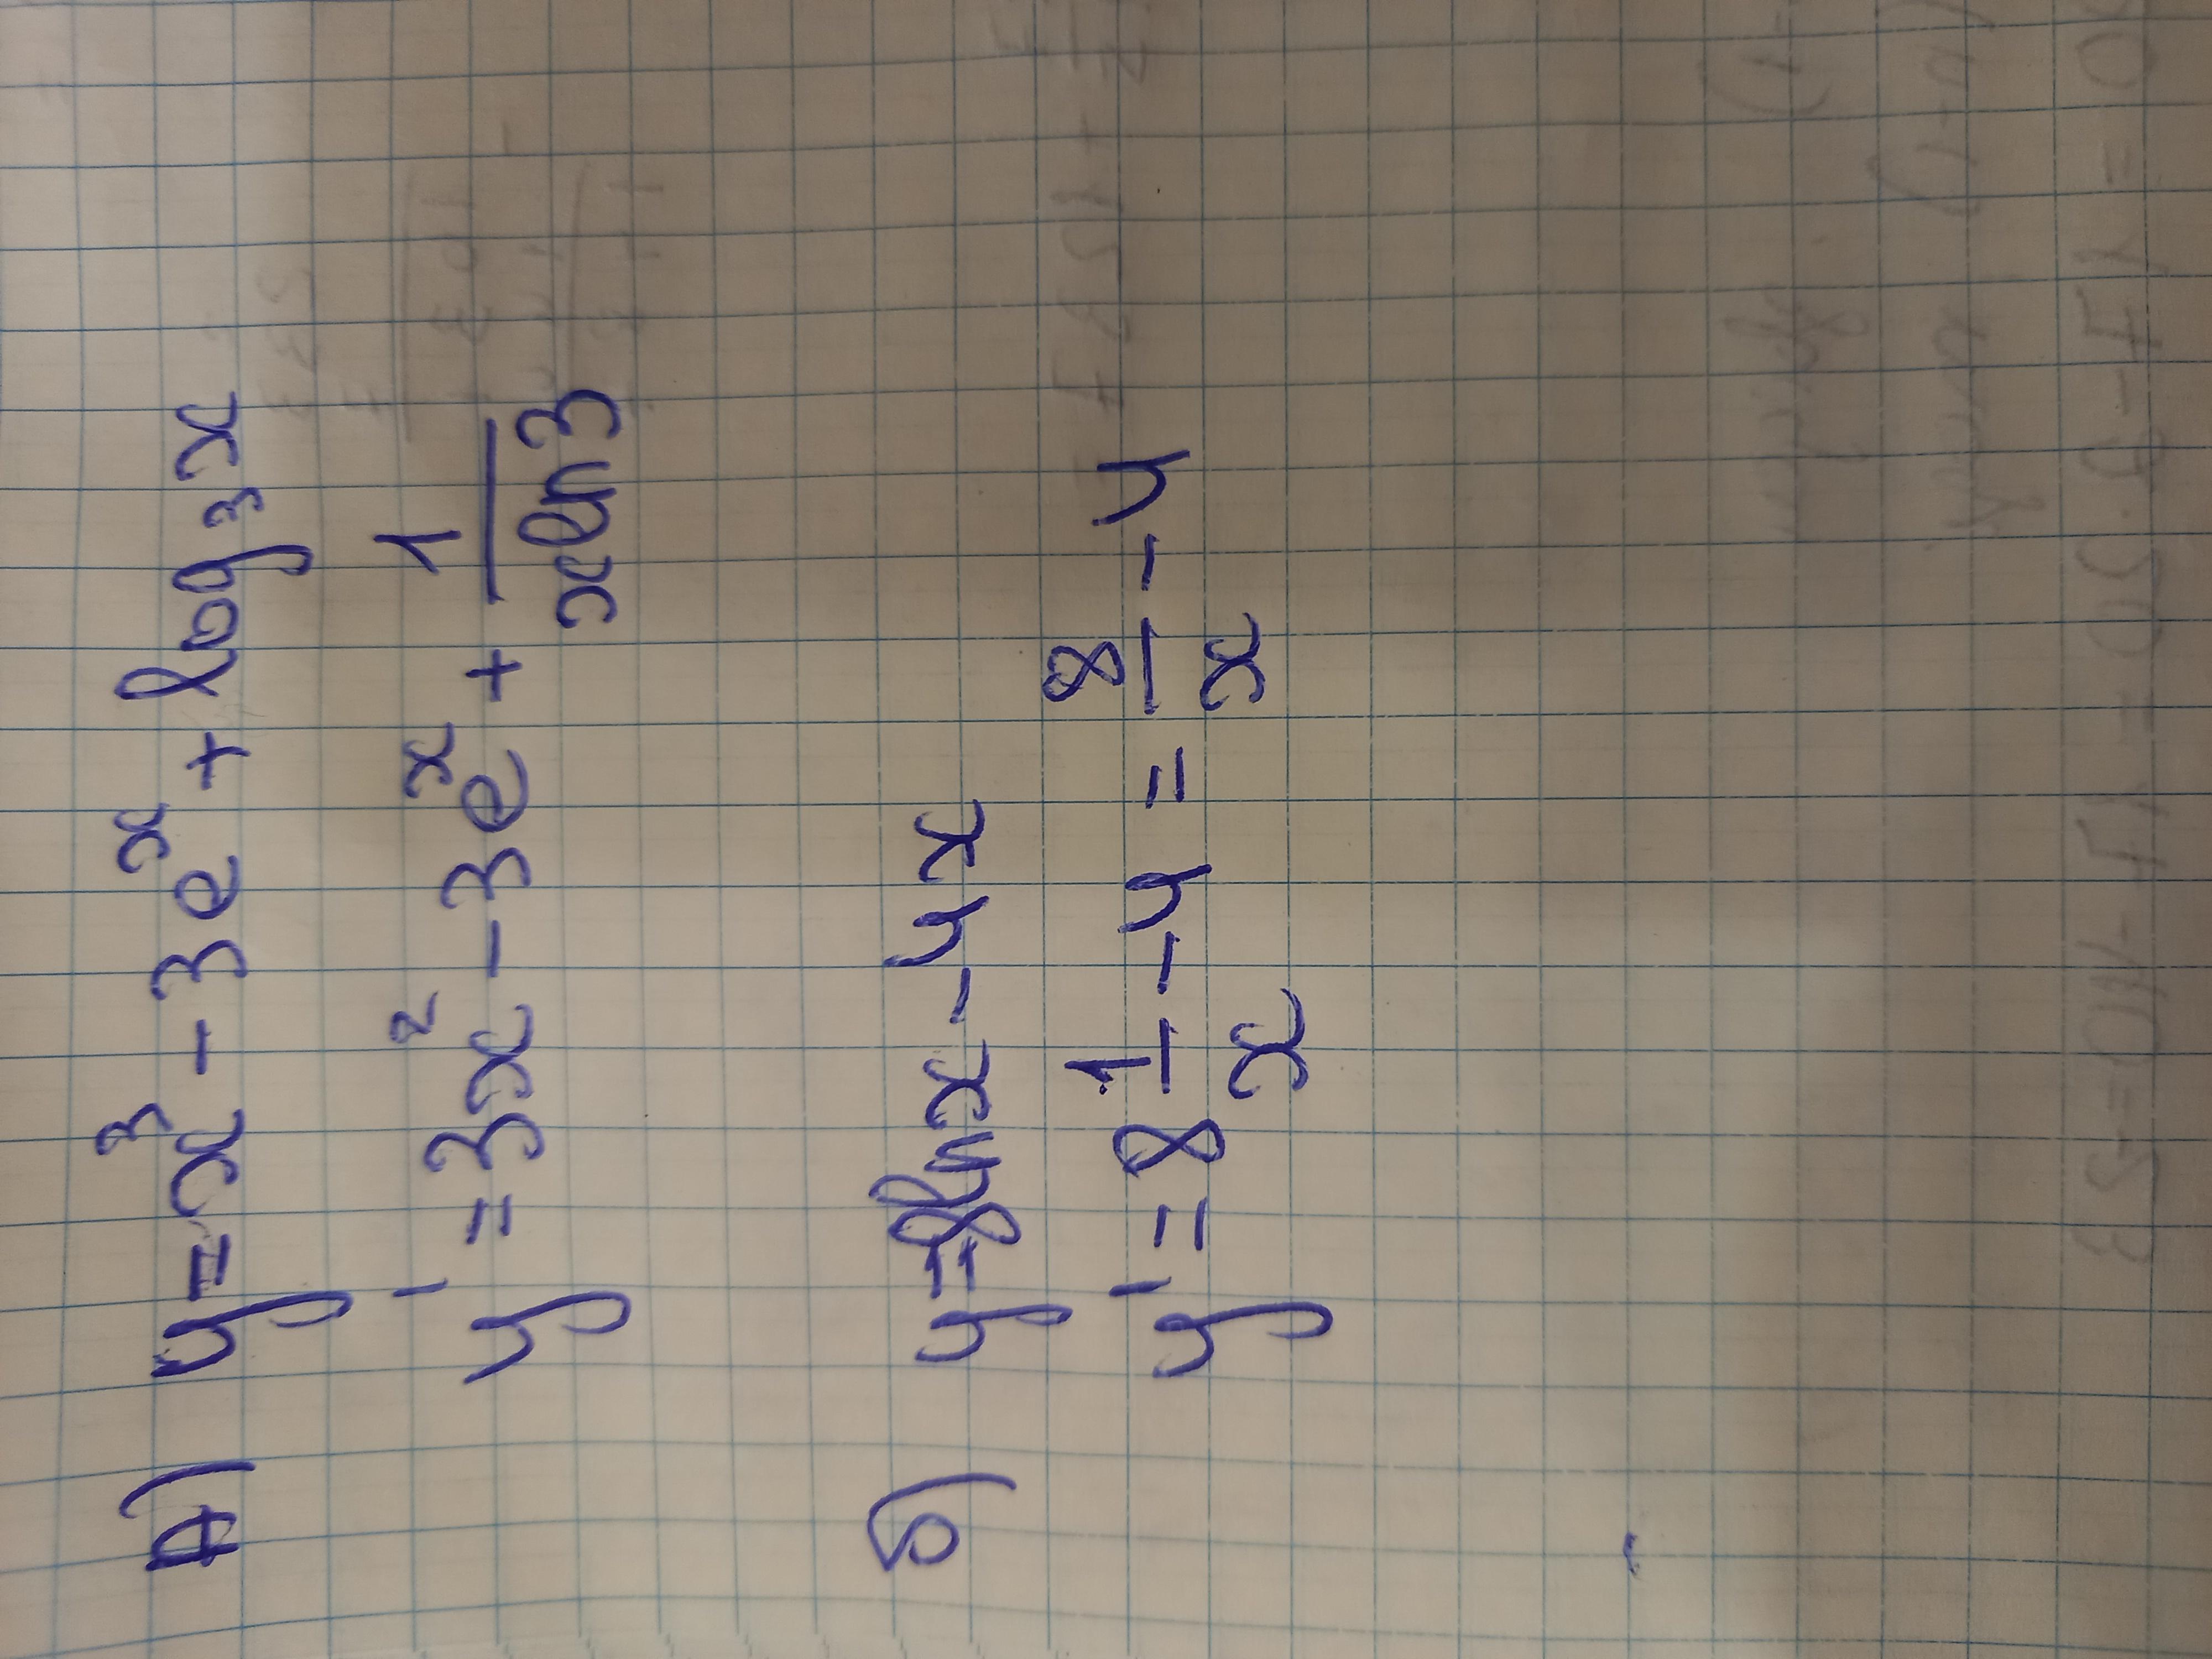 А) y=x³-3eˣ+log₃x
y'=3x²-3eˣ+1/xln3
б) y=8lnx-4x
y'=8 1/x-4=8/x-4